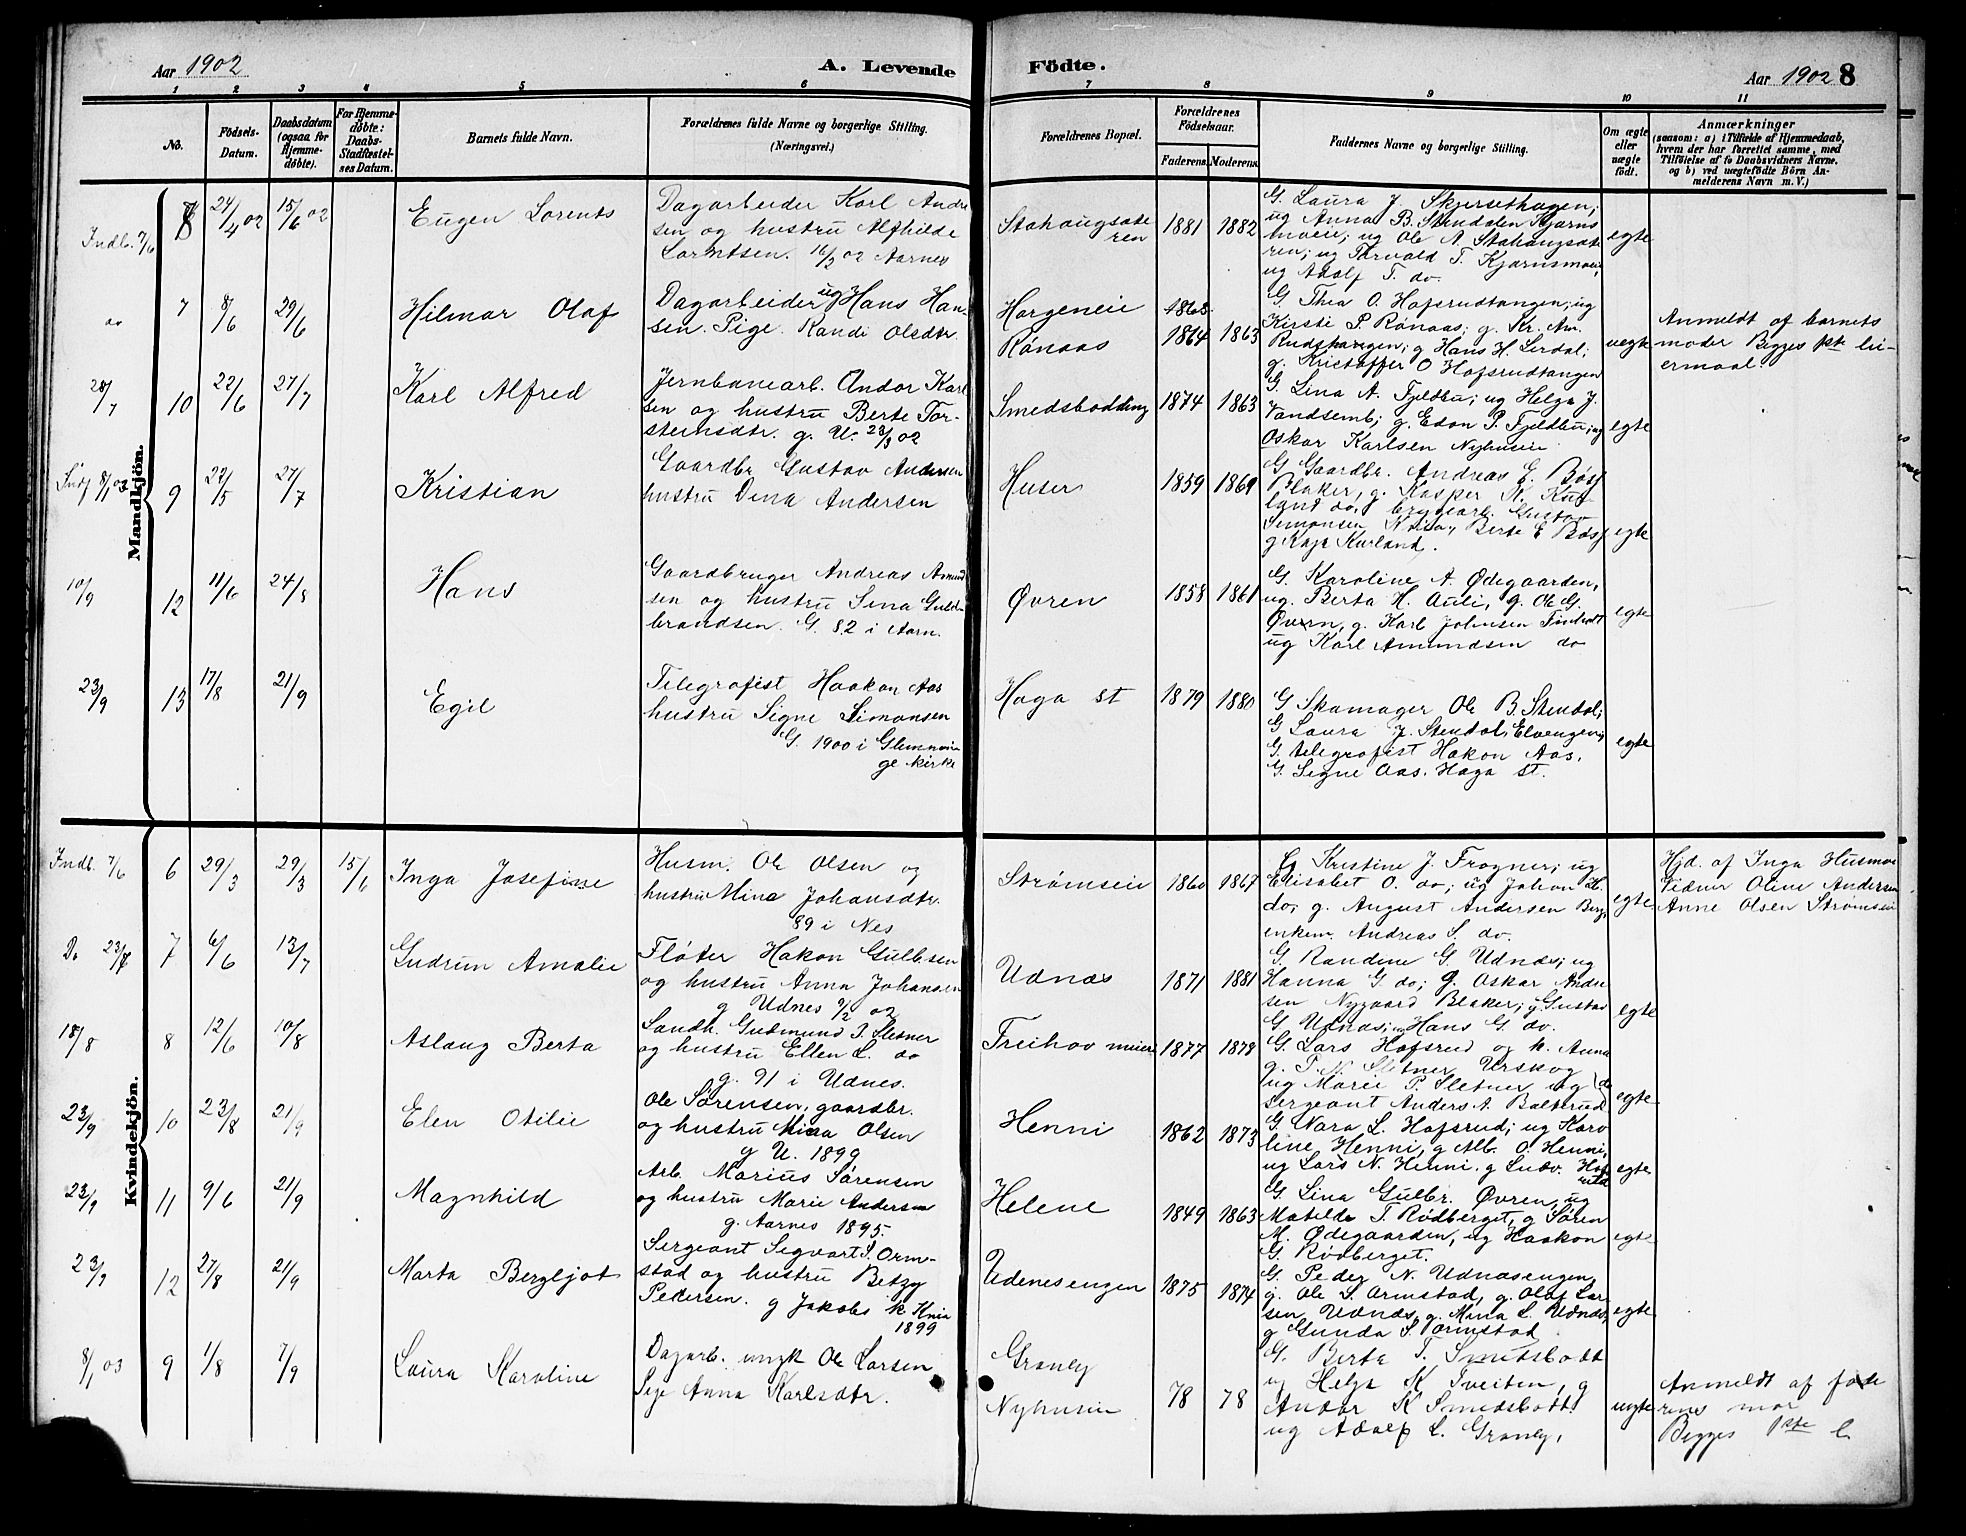 Aar 1902
A. Levende Födte.
Aar 1902 8
1 2 3 4 5 6 7 8 9 10 11
No.
Födsels-Datum.
Daabsdatum (ogsaa for Hjemme-døbte).
For Hjemme-døbte: Daabs-Stadfæstel-ses Datum.
Barnets fulde Navn.
Forældrenes fulde Navne og borgerlige Stilling.
(Næringsvei.)
Forældrenes Bopæl.
Forældrenes Födselsaar.
Faderens. Moderens.
Faddernes Navne og borgerlige Stilling.
Om ægte eller uægte födt.
Anmærkninger
(saasom: a) i Tilfælde af Hjemmedaab,
hvem der har forrettet samme, med
Tilföielse af to Daabsvidners Navne.
og b) ved uægtefödte Börn An-
melderens Navn m. V.)
Mandkjön.
Indb. 7/6 8 24/4 02 15/6 02 Eugen Lorents
Dagarbeider Karl Andre
sen og hustru Alfhilde
Lorntsen. 16/2 02 Aarnes
Stahaugsæte
ren 1881 1882
G. Laura J. Skjersethagen;
ug Anna B. Stendalen Kjærns
moeie; ug Ole A. Stahaugsæte
ren; ug Torvald T. Kjærnsmoeie,
ug Adolf T. do.
egte
do 7 8/6 29/6 Hilmar Olaf
Dagarbeider ug Hans Han-
sen. Pige Randi Olsdtr.
Horgeneie 1868
Rönaas 1864 1863
G Thea O. Hofsrudtangen; ug
Kirsti P. Rönaas; g. Kr. An.
Rudshangen; g Hans H. Lerdal;
g. Kristoffer O Hofsrudtangen
uegte
Anmeldt af barnets
moder Begges 1ste lei-
ermaal.
28/7 10 22/6 27/7 Karl Alfred
Jernbanearb. Andor Karl
sen og hustru Berte Tor-
steinsdtr. g. U. 23/3 02
Smedsbodding 1874 1863
G Lina A. Fjeldbu; ug Helga J.
Vandsemb; g. Edon P. Fjeldbu; ug
Oskar Karlsen Nyhuseie
egte
Indf 8/1 03 9 22/5 27/7 Kristian
Gaardbr Gustav Andersen
hustru Dina Andersen
Huser 1859 1869
G Gaardbr. Andreas E. Bösj
Blaker, g. Kasper K. Kur
land do, g brygearb. Gustav
Simonsen Berte E Bösj
g Kaja Kurland.
egte
10/9 12 11/6 24/8 Hans
Gaardbruger Andreas Amund
sen og hustru Lina Guld
brandsen. G. 82 i Aarn.
Øvren 1858 1861
G. Karoline A. Ødegaarden,
ug. Berta H. Auli, g. Ole G.
Øvern, g. Karl Johnsen Finholt
ug Karl Amundsen do
egte
23/9 13 17/8 21/9 Egil
Telegrafist Haakon Aas
hustru Signe Simonsen
G. 1900 i Glemmin
ge kirke
Haga st 1879 1880
G Skomager Ole B. Stendal;
G Laura J. Stendal, Elvengen;
G. telegrafist Hakon Aas,
G. Signe Aas. Haga st.
egte
Kvindekjön.
Indb. 7/6 6 29/3 29/3 15/6 Inga Josefine
Husm. Ole Olsen og
hustru Mina Johansdtr.
89 i Nes
Strömseie 1860 1867
G Kristine J. Frogner; ug
Elisabet O. do; ug Johan H.
do; g. August Andersen Berg,
enkem. Andreas S. do.
egte
Hjd. af Inga Husmo
Vidner Oline Andersen
Anne Olsen Strömseie
Do 23/7 7 6/6 13/7 Gudrun Amalie
Fløter Hakon Gulbsen
og hustru Anna Johansen
g Udnes 9/2 02
Udnæs 1871 1881
G. Randine G. Udnæs; ug
Hanna G. do; g. Oskar Ander
sen Nygaard Blaker; ug Gustav
G. Udnæs; ug Hans G. do.
egte
18/8 8 12/6 10/8 Aslaug Berta
Landh. Gudmund P. Sletner
og hustru Ellen L. do
g. 91 i Udnes.
Treihov meieri 1877 1878
G. Lars Hofsrud og h. Anna
g. T. N. Sletner Urskog
ug Marie P. Sletner ug do
sergeant Anders A. Balterud
egte
23/9 10 23/8 21/9 Elen Otilie
Ole Sörensen, gaardbr.
og hustru Mina Olsen
g U. 1899
Henni 1862 1873
G. Nora L. Hofsrud; ug Karo
line Henni, g Alb. O. Henni,
ug Lars N. Henni. g Ludv. Hofs
rud
egte
23/9 11 9/6 21/9 Magnhild
Arb. Marius Sörensen
og hustru Marie Andersen
g. Aarnes 1895.
Helene 1849 1863
G. Lina Gulbr. Øvren, ug
Matilde T. Rödberget, g Sören
M. Ødegaarden, ug Haakon
G. Rödberget.
egte
23/9 12 27/8 21/9 Marta Bergljot
Sergeant Segvart S. Orm-
stad og hustru Betzy
Pedersen. g Jakobs k. Knia
1899
Udenesengen 1875 1874
G. Peder N. Udnæsengen,
g. Ole S. Ormstad, g. Olaf Lar
sen Udnæs, g. Mina L. Udnæs,
g Gunda S. Ormstad
egte
8/1 03 9 1/8 7/9 Laura Karoline
Dagarb. ungk Ole Larsen
Pige Anna Karlsdtr.
Granly
Nyhuseie 78 78
G. Berta T. Smedsbodd
ug Helga K Tveiten, g
Andor K Smedsbodd.
ug Adolf L. Granly,
uegte
Anmeldt af fade
rens mor
Begges 1ste l.